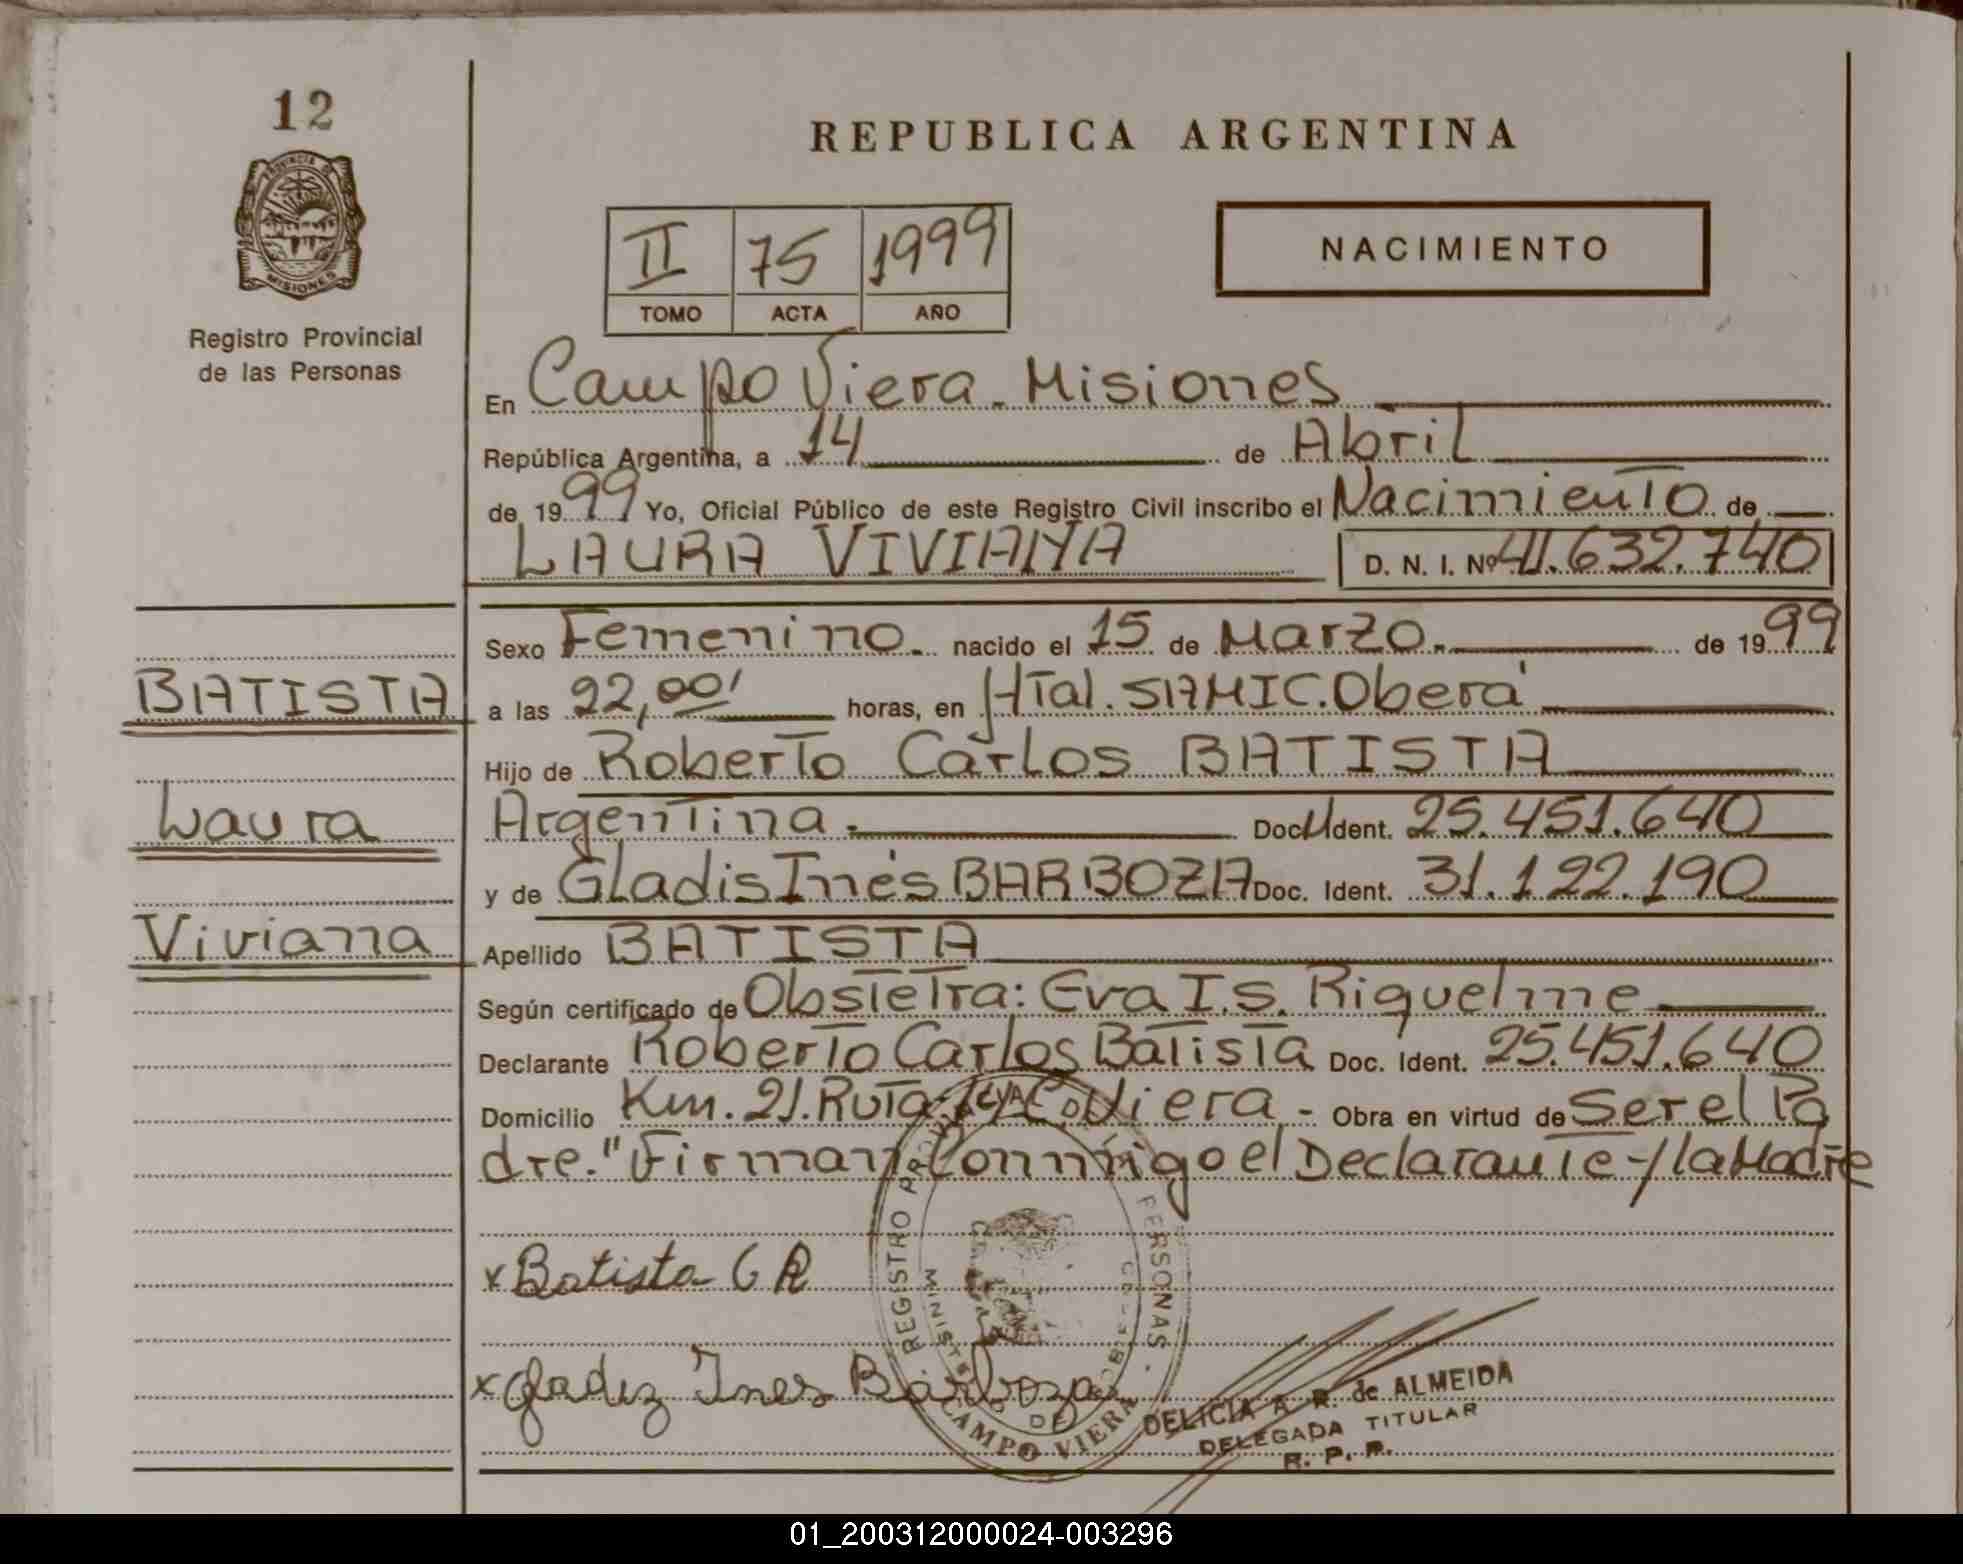 12
PROVINCIA DE
MISIONES
Registro Provincial
de las Personas
REPUBLICA ARGENTINA
II 75 1999
TOMO ACTA AÑO
NACIMIENTO
En Campo Viera - Misiones
República Argentina, a 14 de Abril
de 1999 Yo, Oficial Público de este Registro Civil inscribo el Nacimiento de
LAURA VIVIANA D. N. I. Nº 41.632.740
Sexo Femenino. nacido el 15 de Marzo. de 1999
BATISTA
a las 22,00' horas, en Htal. SAMIC. Oberá
Hijo de Roberto Carlos BATISTA
Laura
Argentina. Doc. Ident. 25.451.640
y de Gladis Inés BARBOZA Doc. Ident. 31.122.190
Viviana
Apellido BATISTA
Según certificado de Obstetra: Eva I.S. Riquelme
Declarante Roberto Carlos Batista Doc. Ident. 25.451.640
Domicilio Km. 21. Ruta C. Viera - Obra en virtud de Ser el Pa
dre." Firman Conmigo el Declarante -/ la Madre
x Batista C R
x Gladiz Ines Barboza
REGISTRO PERSONAS
CAMPO VIERA
DELICIA A. R. de ALMEIDA
DELEGADA TITULAR
R. P. P.
01_200312000024-003296